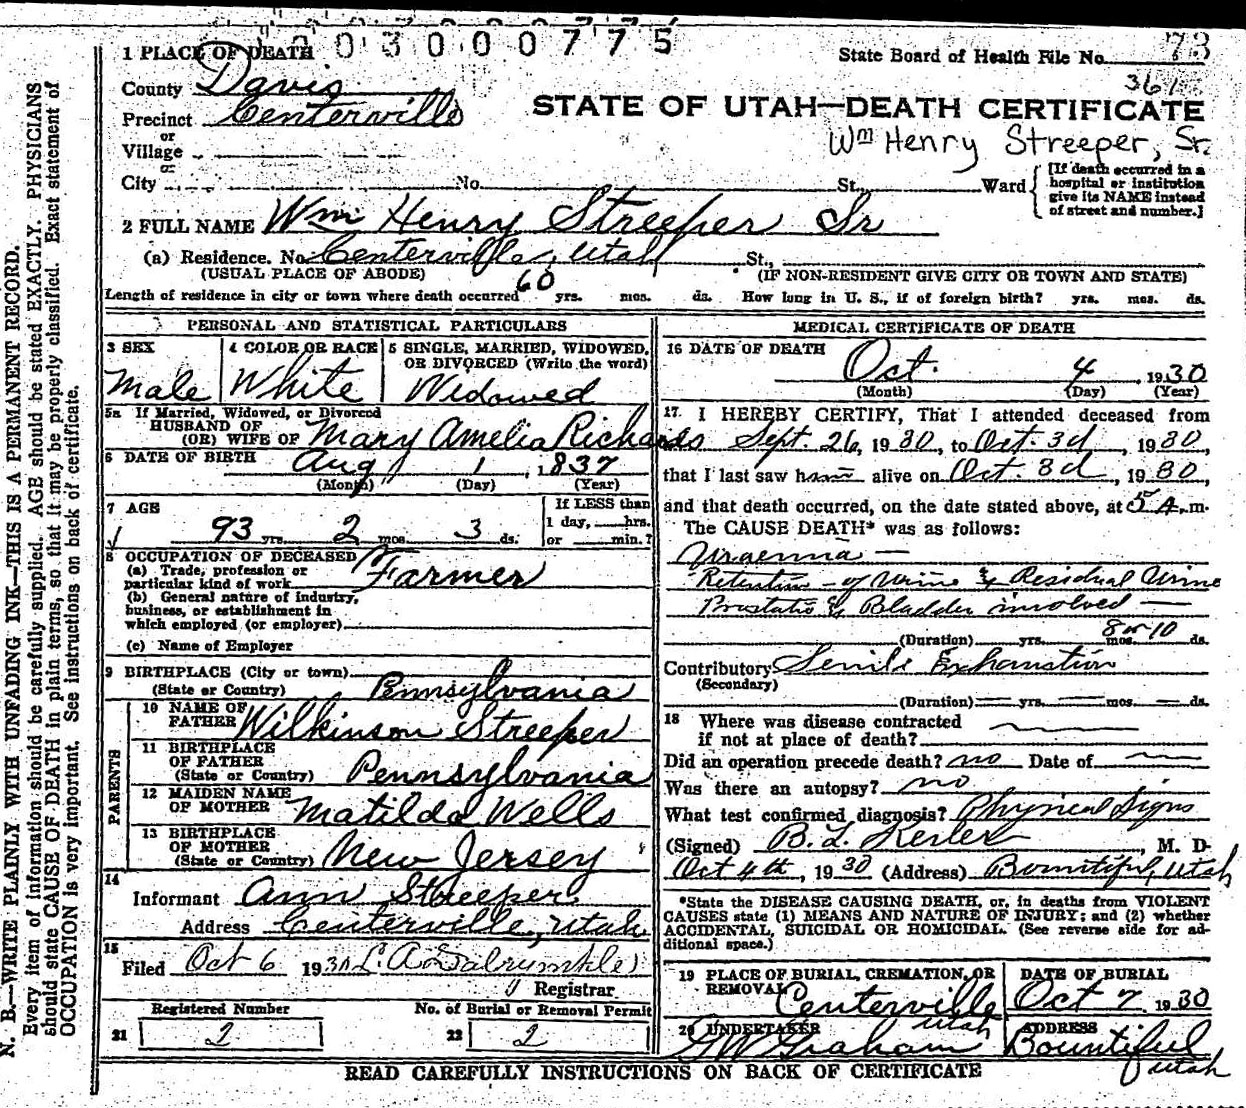 0030000775
1 PLACE OF DEATH
State Board of Health File No. 73
County Davis
361
Precinct Centerville
STATE OF UTAH—DEATH CERTIFICATE
or
Village
Wm Henry Streeper, Sr.
or
City No. St., Ward
[If death occurred in a hospital or institution give its NAME instead of street and number.]
2 FULL NAME Wm Henry Streeper Sr
(a) Residence. No. Centerville, Utah St.,
(USUAL PLACE OF ABODE) (IF NON-RESIDENT GIVE CITY OR TOWN AND STATE)
Length of residence in city or town where death occurred 60 yrs. mos. ds. How long in U. S., if of foreign birth? yrs. mos. ds.
PERSONAL AND STATISTICAL PARTICULARS
3 SEX
Male
4 COLOR OR RACE
White
5 SINGLE, MARRIED, WIDOWED,
OR DIVORCED (Write the word)
Widowed
5a If Married, Widowed, or Divorced
HUSBAND OF
(OR) WIFE OF Mary Amelia Richards
6 DATE OF BIRTH Aug 1, 1837
(Month) (Day) (Year)
7 AGE
93 yrs. 2 mos. 3 ds.
If LESS than
1 day, hrs.
or min.?
8 OCCUPATION OF DECEASED
(a) Trade, profession or
particular kind of work Farmer
(b) General nature of industry,
business, or establishment in
which employed (or employer)
(c) Name of Employer
9 BIRTHPLACE (City or town)
(State or Country) Pennsylvania
PARENTS
10 NAME OF
FATHER Wilkinson Streeper
11 BIRTHPLACE
OF FATHER
(State or Country) Pennsylvania
12 MAIDEN NAME
OF MOTHER Matilda Wells
13 BIRTHPLACE
OF MOTHER
(State or Country) New Jersey
14
Informant Ann Streeper
Address Centerville, Utah
15
Filed Oct 6 1930 L. A. Dalrymple
Registrar
Registered Number
21 2
No. of Burial or Removal Permit
22 2
MEDICAL CERTIFICATE OF DEATH
16 DATE OF DEATH
Oct. 4, 1930
(Month) (Day) (Year)
17. I HEREBY CERTIFY, That I attended deceased from
Sept. 26, 1930, to Oct. 3d, 1930,
that I last saw him alive on Oct. 3d, 1930,
and that death occurred, on the date stated above, at 5 A.m.
The CAUSE DEATH* was as follows:
Uraemia —
Retention of Urine & Residual Urine
Prostate & Bladder involved —
(Duration) yrs. mos. 8 or 10 ds.
Contributory Senile Exhaustion
(Secondary)
(Duration) yrs. mos. ds.
18 Where was disease contracted
if not at place of death?
Did an operation precede death? no Date of
Was there an autopsy? no
What test confirmed diagnosis? Physical Signs
(Signed) B. L. , M. D.
Oct 4th, 1930 (Address) Bountiful, Utah
*State the DISEASE CAUSING DEATH, or, in deaths from VIOLENT
CAUSES state (1) MEANS AND NATURE OF INJURY; and (2) whether
ACCIDENTAL, SUICIDAL OR HOMICIDAL. (See reverse side for ad-
ditional space.)
19 PLACE OF BURIAL, CREMATION, OR
REMOVAL Centerville
Utah
DATE OF BURIAL
Oct 7 1930
20 UNDERTAKER
G W Graham
ADDRESS
Bountiful
Utah
READ CAREFULLY INSTRUCTIONS ON BACK OF CERTIFICATE
N. B.—WRITE PLAINLY WITH UNFADING INK—THIS IS A PERMANENT RECORD.
Every item of information should be carefully supplied. AGE should be stated EXACTLY. PHYSICIANS
should state CAUSE OF DEATH in plain terms, so that it may be properly classified. Exact statement of
OCCUPATION is very important. See instructions on back of certificate.